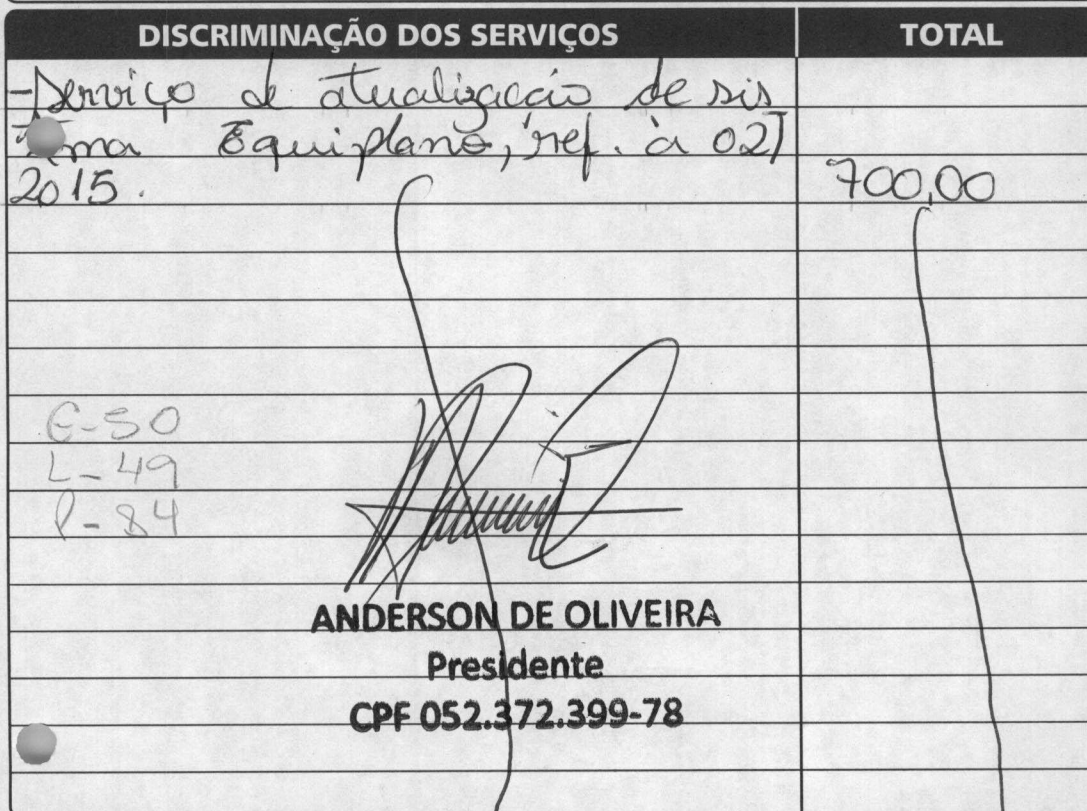 DISCRIMINAÇÃO DOS SERVIÇOS TOTAL
-Serviço de atualização de sis
tema Equiplano, ref. à 02/
2015. 700,00
E-50
L-49
P-84
ANDERSON DE OLIVEIRA
Presidente
CPF 052.372.399-78